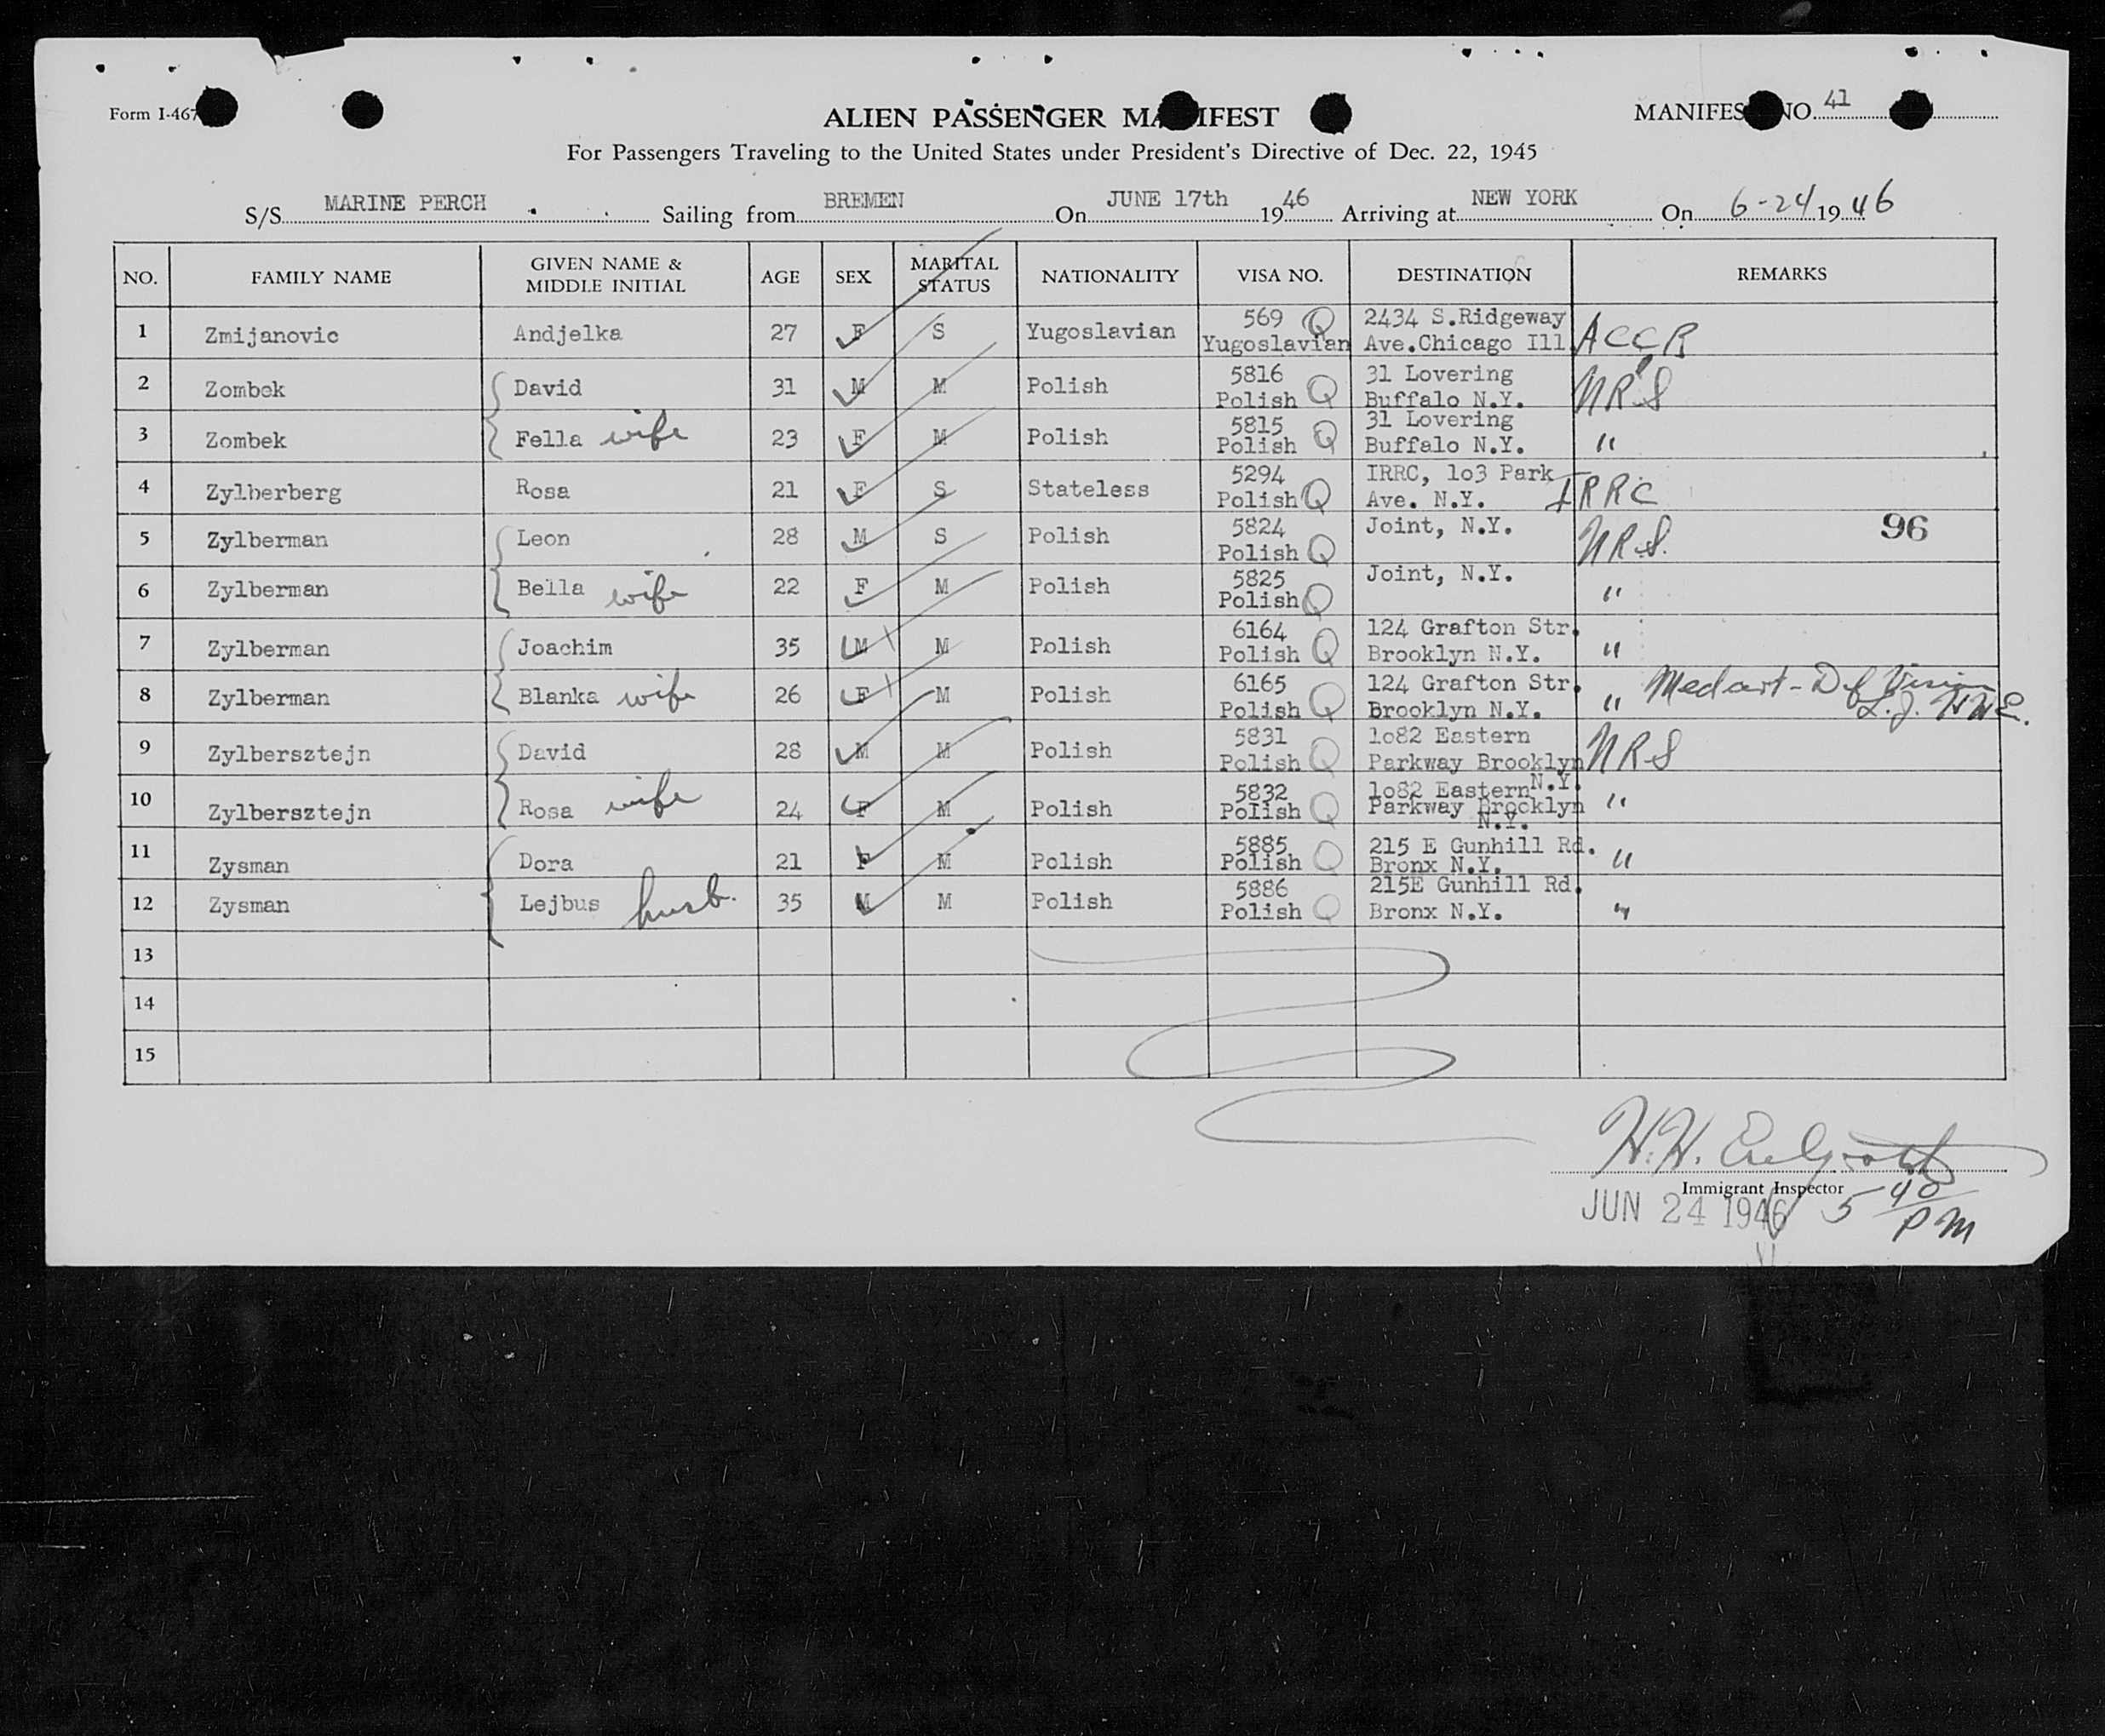 Form I-467
ALIEN PASSENGER MANIFEST
MANIFEST NO. 41
For Passengers Traveling to the United States under President's Directive of Dec. 22, 1945
S/S MARINE PERCH Sailing from BREMEN On JUNE 17th 1946 Arriving at NEW YORK On 6-24 1946
NO. FAMILY NAME GIVEN NAME & MIDDLE INITIAL AGE SEX MARITAL STATUS NATIONALITY VISA NO. DESTINATION REMARKS
1 Zmijanovic Andjelka 27 F S Yugoslavian 569 Q Yugoslavian 2434 S.Ridgeway Ave.Chicago Ill ACCR
2 Zombek David 31 M M Polish 5816 Polish Q 31 Lovering Buffalo N.Y. NRS
3 Zombek Fella wife 23 F M Polish 5815 Polish Q 31 Lovering Buffalo N.Y. "
4 Zylberberg Rosa 21 F S Stateless 5294 Polish Q IRRC, 1o3 Park Ave. N.Y. IRRC
5 Zylberman Leon 28 M S Polish 5824 Polish Q Joint, N.Y. NRS. 96
6 Zylberman Bella wife 22 F M Polish 5825 Polish Q Joint, N.Y. "
7 Zylberman Joachim 35 M M Polish 6164 Polish Q 124 Grafton Str. Brooklyn N.Y. "
8 Zylberman Blanka wife 26 F M Polish 6165 Polish Q 124 Grafton Str. Brooklyn N.Y. " Med cert - Def Vision
9 Zylbersztejn David 28 M M Polish 5831 Polish Q 1o82 Eastern Parkway Brooklyn N.Y. NRS
10 Zylbersztejn Rosa wife 24 F M Polish 5832 Polish Q 1o82 Eastern Parkway Brooklyn N.Y. "
11 Zysman Dora 21 F M Polish 5885 Polish Q 215 E Gunhill Rd. Bronx N.Y. "
12 Zysman Lejbus husb. 35 M M Polish 5886 Polish Q 215E Gunhill Rd. Bronx N.Y. "
13
14
15
H.H.
Immigrant Inspector
JUN 24 1946 5 40 PM